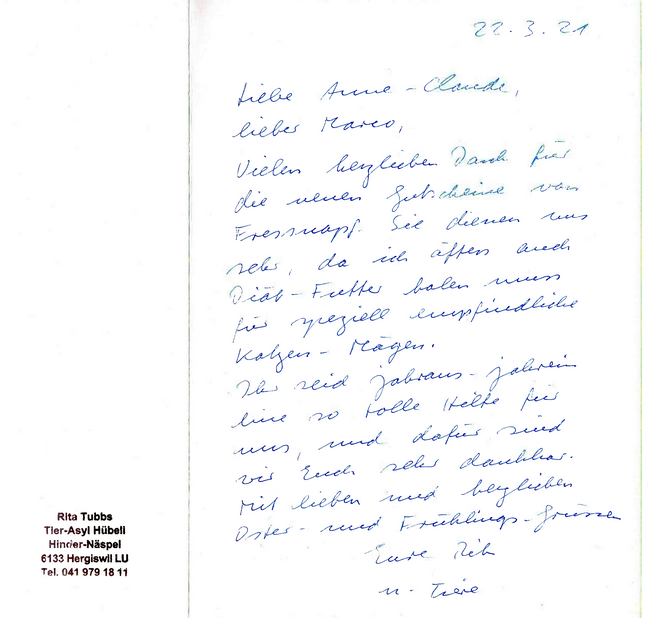 22.3.21
Liebe Anne-Claude,
lieber Marco,
Vielen herzlichen Dank für
die neuen Gutscheine von
Fressnapf. Sie dienen uns
sehr, da ich öfters auch
Diät-Futter holen muss
für speziell empfindliche
Katzen-Mägen.
Ihr seid jahraus-jahrein
eine so tolle Hilfe für
uns, und dafür sind
wir Euch sehr dankbar.
Mit lieben und herzlichen
Oster- und Frühlings-Grüssen
Eure Rita
u. Tiere
Rita Tubbs
Tier-Asyl Hübeli
Hinder-Näspel
6133 Hergiswil LU
Tel. 041 979 18 11